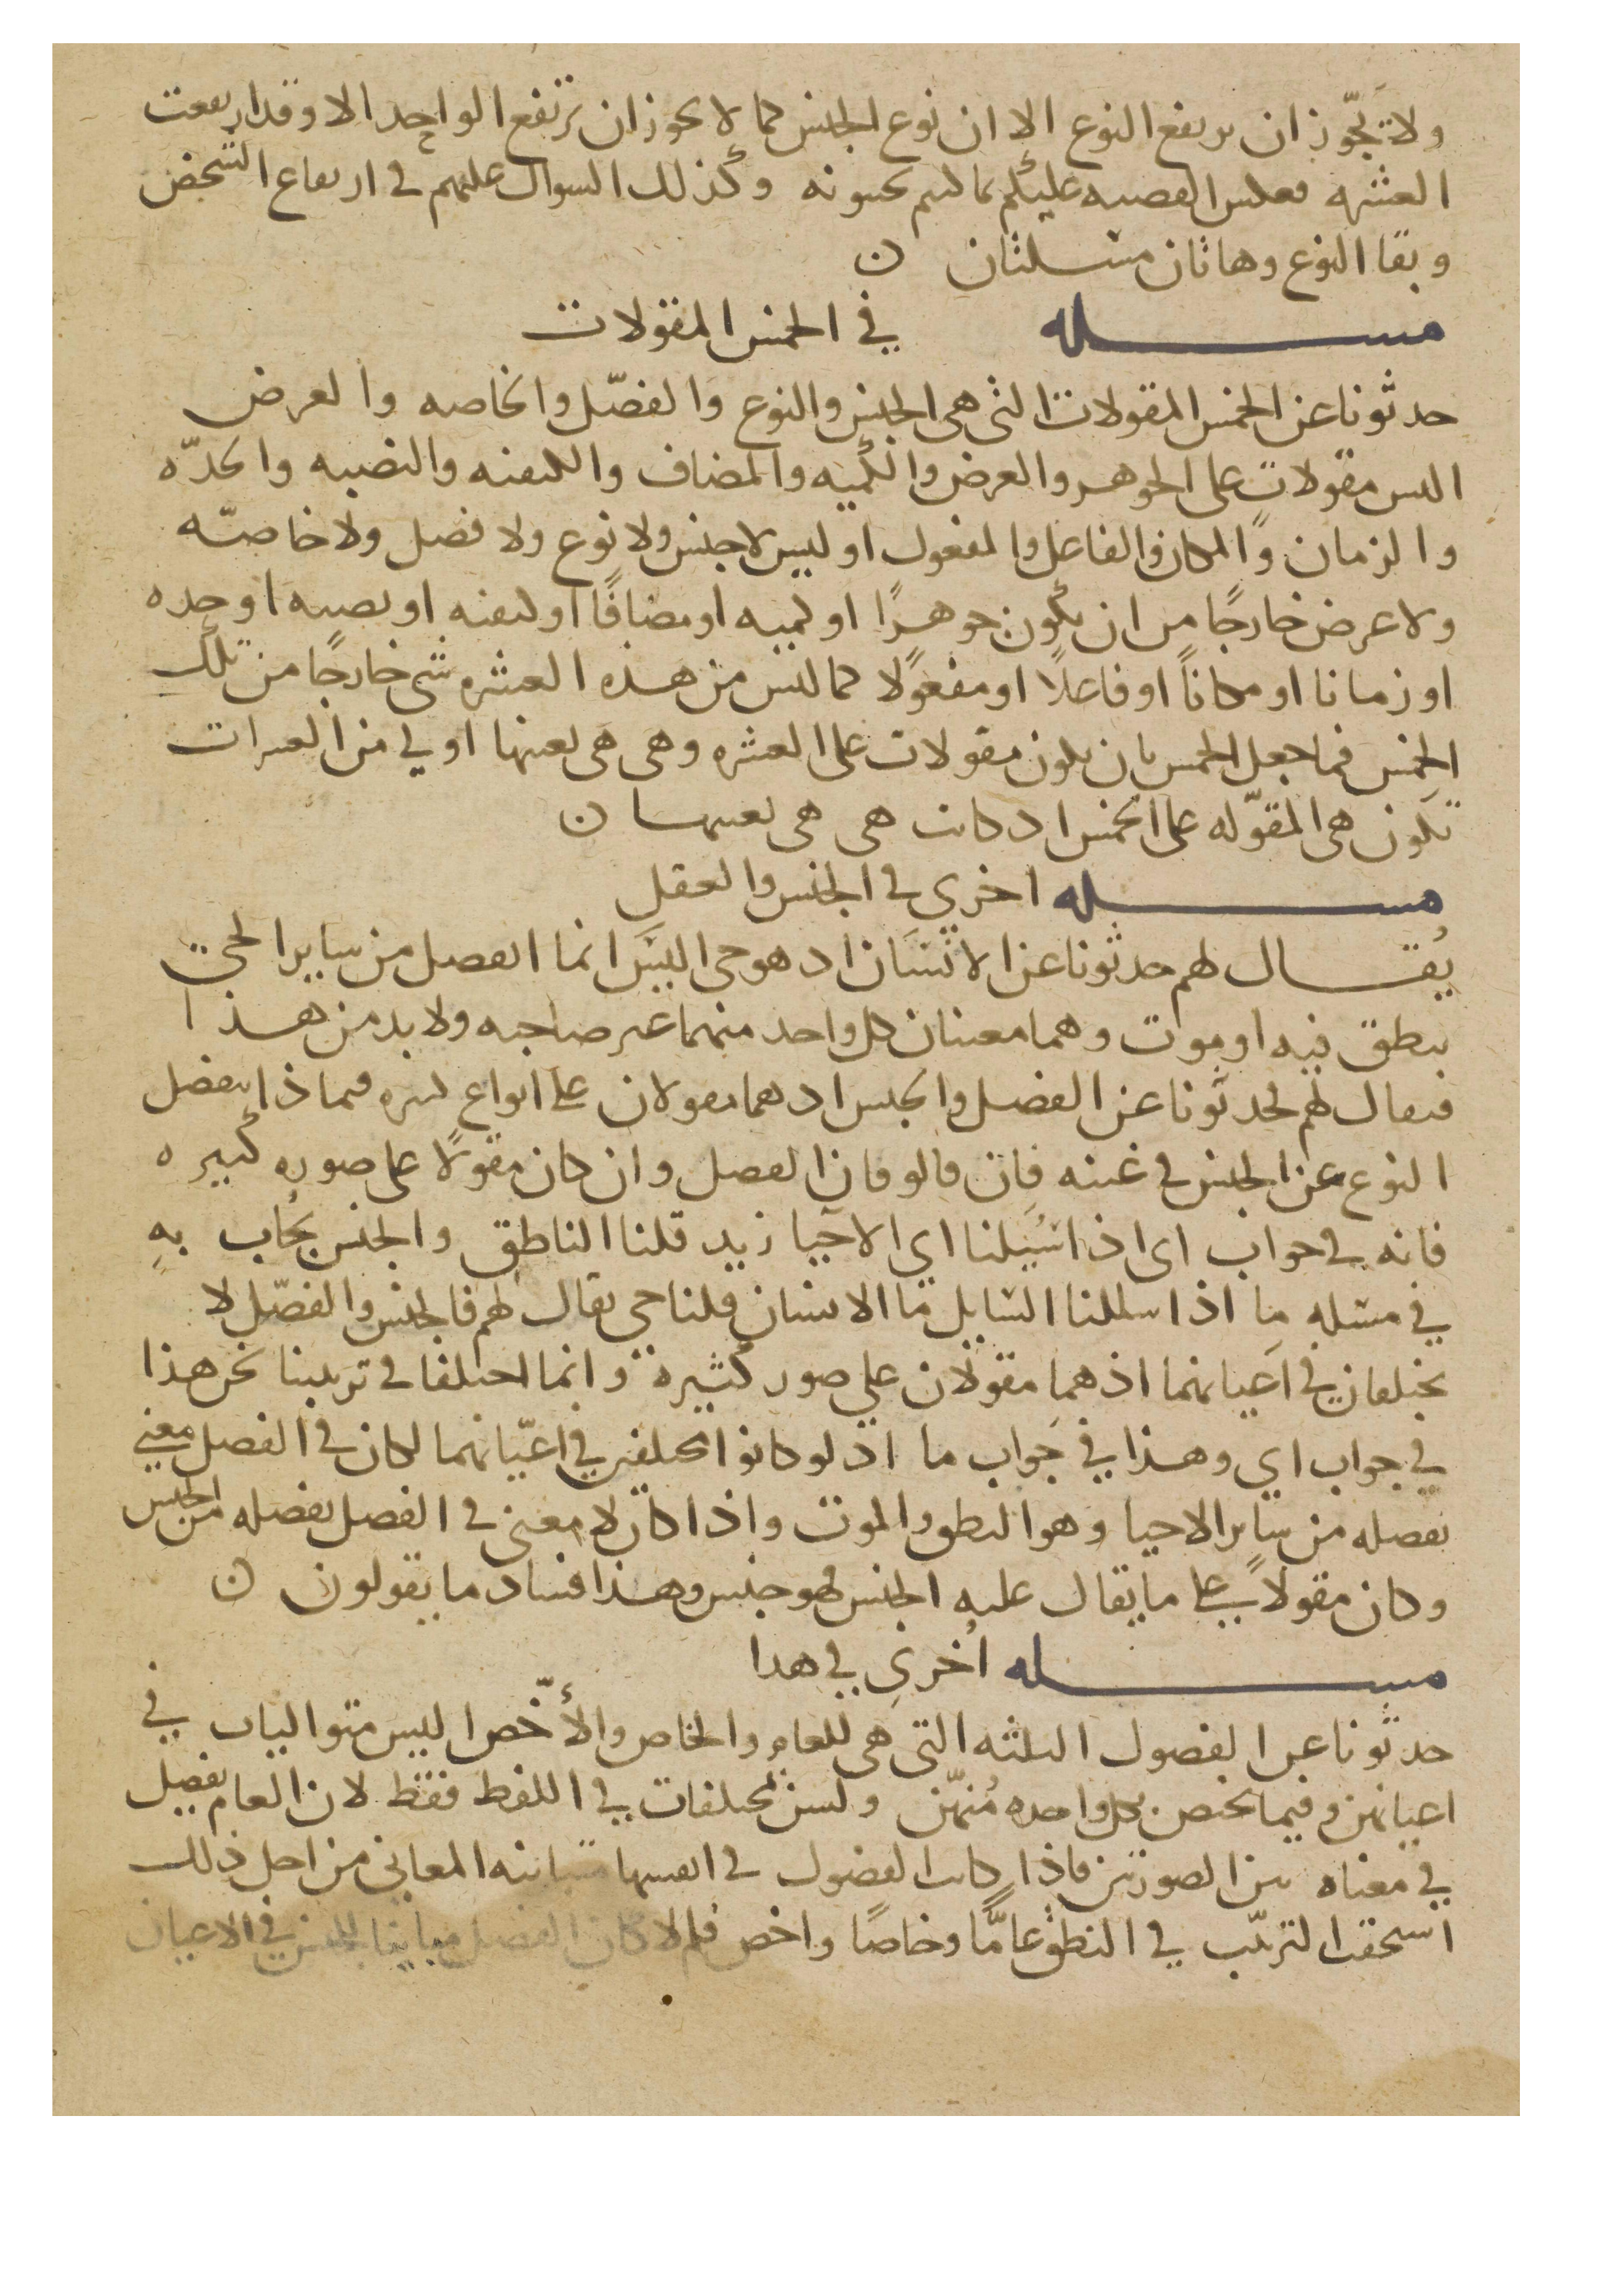 ولا تجوز ان يرتفع النوع الا ان نوع الجنس كما لا يجوز ان يرتفع الواحد الا وقد ارتفعت
العشره فعكس القصيه عليكم كما لستم تحبونه وكذلك السوال عليهم في ارتفاع الشخص
وبقا النوع وهاتان مسلتان ن
مسله في الخمس المقولات
حدثونا عن الخمس المقولات التى هى الجنس والنوع والفصّل والخاصه والعرض
اليس مقولات على الجوهر والعرض والكميه والمضاف والكيفيه والنصبه والجدّه
والزمان والمكان والفاعل والمفعول او ليس لا جنس ولا نوع ولا فصل ولا خاصّه
ولا عرض خارجًا من ان يكون جوهرًا او كميه او مضافًا او كيفيه او نصبه او جده
او زمانا او مكاناً او فاعلاً او مفعولًا كما ليس من هذه العشره شى خارجًا من تلك
الخمس فما جعل الخمس بان يكون مقولات على العشره وهى هى بعينها اولي من العشرات
تكون هى المقوّله على الخمس اذ كانت هى هى بعينها ن
مسله اخرى في الجنس والعقل
يُقال لهم حدثونا عن الانسان اذ هو حى اليس انما انفصل من ساير الحى
بنطق فيه او موت وهما معنيان كل واحد منهما غير صاحبه ولا بد من هذا
فيقال لهم فحدثونا عن الفصل والجنس اذ هما مقولان على انواع كثيره فبماذا ينفصل
النوع عن الجنس في عينه فان قالو فان الفصل وان كان مقولًا على صوره كبيره
فانه في جواب اى اذا سُيلنا اي الاحيا زيد قلنا الناطق والجنس يجاب بهِ
في مسله ما اذا سالنا السايل ما الانسان قلنا حى يقال لهم فالجنس والفصّل لا
يختلفان في اعيانهما اذ هما مقولان علي صور كثيرة وانما اختلفا في ترتيبنا نحن هذا
في جواب اي وهذا في جواب ما اذ لو كانوا مختلفين في اعيانهما لكان في الفصل معنى
يفصله من ساير الاحيا وهو النطق والموت واذا كان لا معنى في الفصل يفصله من الجنس
وكان مقولاً على ما يقال عليه الجنس فهو جنس وهذا فساد ما يقولون ن
مسله اُخرى في هذا
حدثونا عن الفصول الثلثه التى هى للعام والخاص والأخّص اليس متواليات في
اعيانهن وفيما يختص بكل واحده مُنهّن ولسن مختلفات في اللفظ فقط لان العام يفصل
في معناه بين الصورتين فاذا كانت الفصول في انفسها متباينه المعاني من اجل ذلك
استحقت الترتّب في النطق عامًّا وخاصًا واخص فلم لا كان الفصل مباينا للجنس في الاعيان